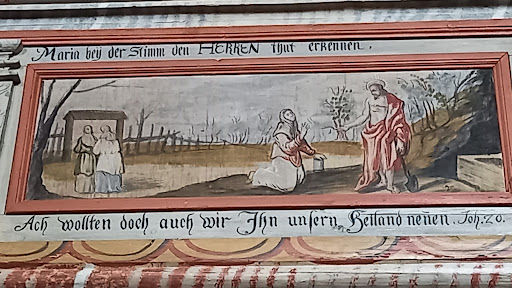 Maria bey der Stimm den HERREN thut erkennen.
Ach wollten doch auch wir Ihn unsern Heiland neñen. Joh. 20.